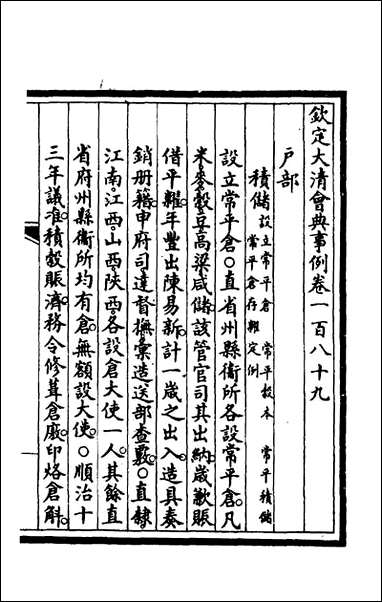 欽定大清會典事例卷一百八十九
戶部
積儲設立常平倉 常平穀本 常平積儲
常平倉存糶定例
設立常平倉○直省州縣衞所各設常平倉。凡
米麥穀豆高粱咸儲。該管官司其出納。歲歉賑
借平糶。年豐出陳易新。計一歲之出入。造具奏
銷册籍。申府司。達督撫。彙造送部查覈。○直隸
江南。江西。山西。陝西。各設倉大使一人。其餘直
省府州縣衞所均有倉。無額設大使。○順治十
三年議准。積穀賑濟。務令修葺倉廒。印烙倉斛。